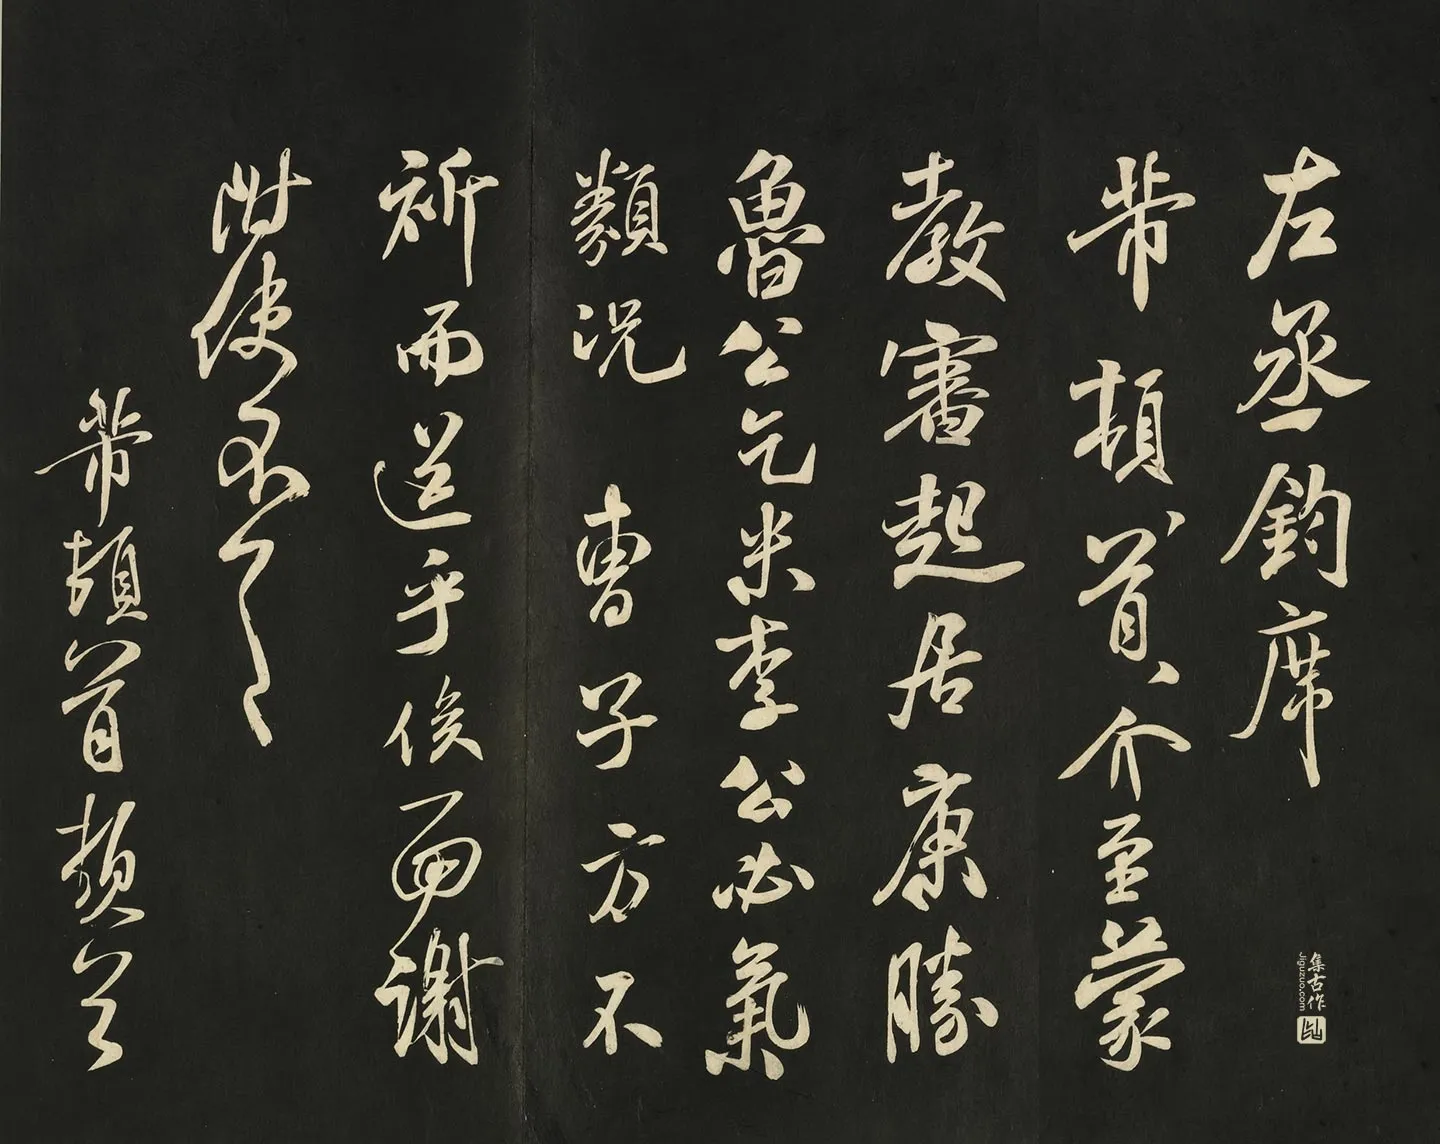 左丞鈞席
芾頓首介至蒙
教審起居康勝
魯公乞米李公必氣
類況 曹子方不
祈而送乎俟面謝
附使
芾頓首頓首
集古作
Jiguzuo.com